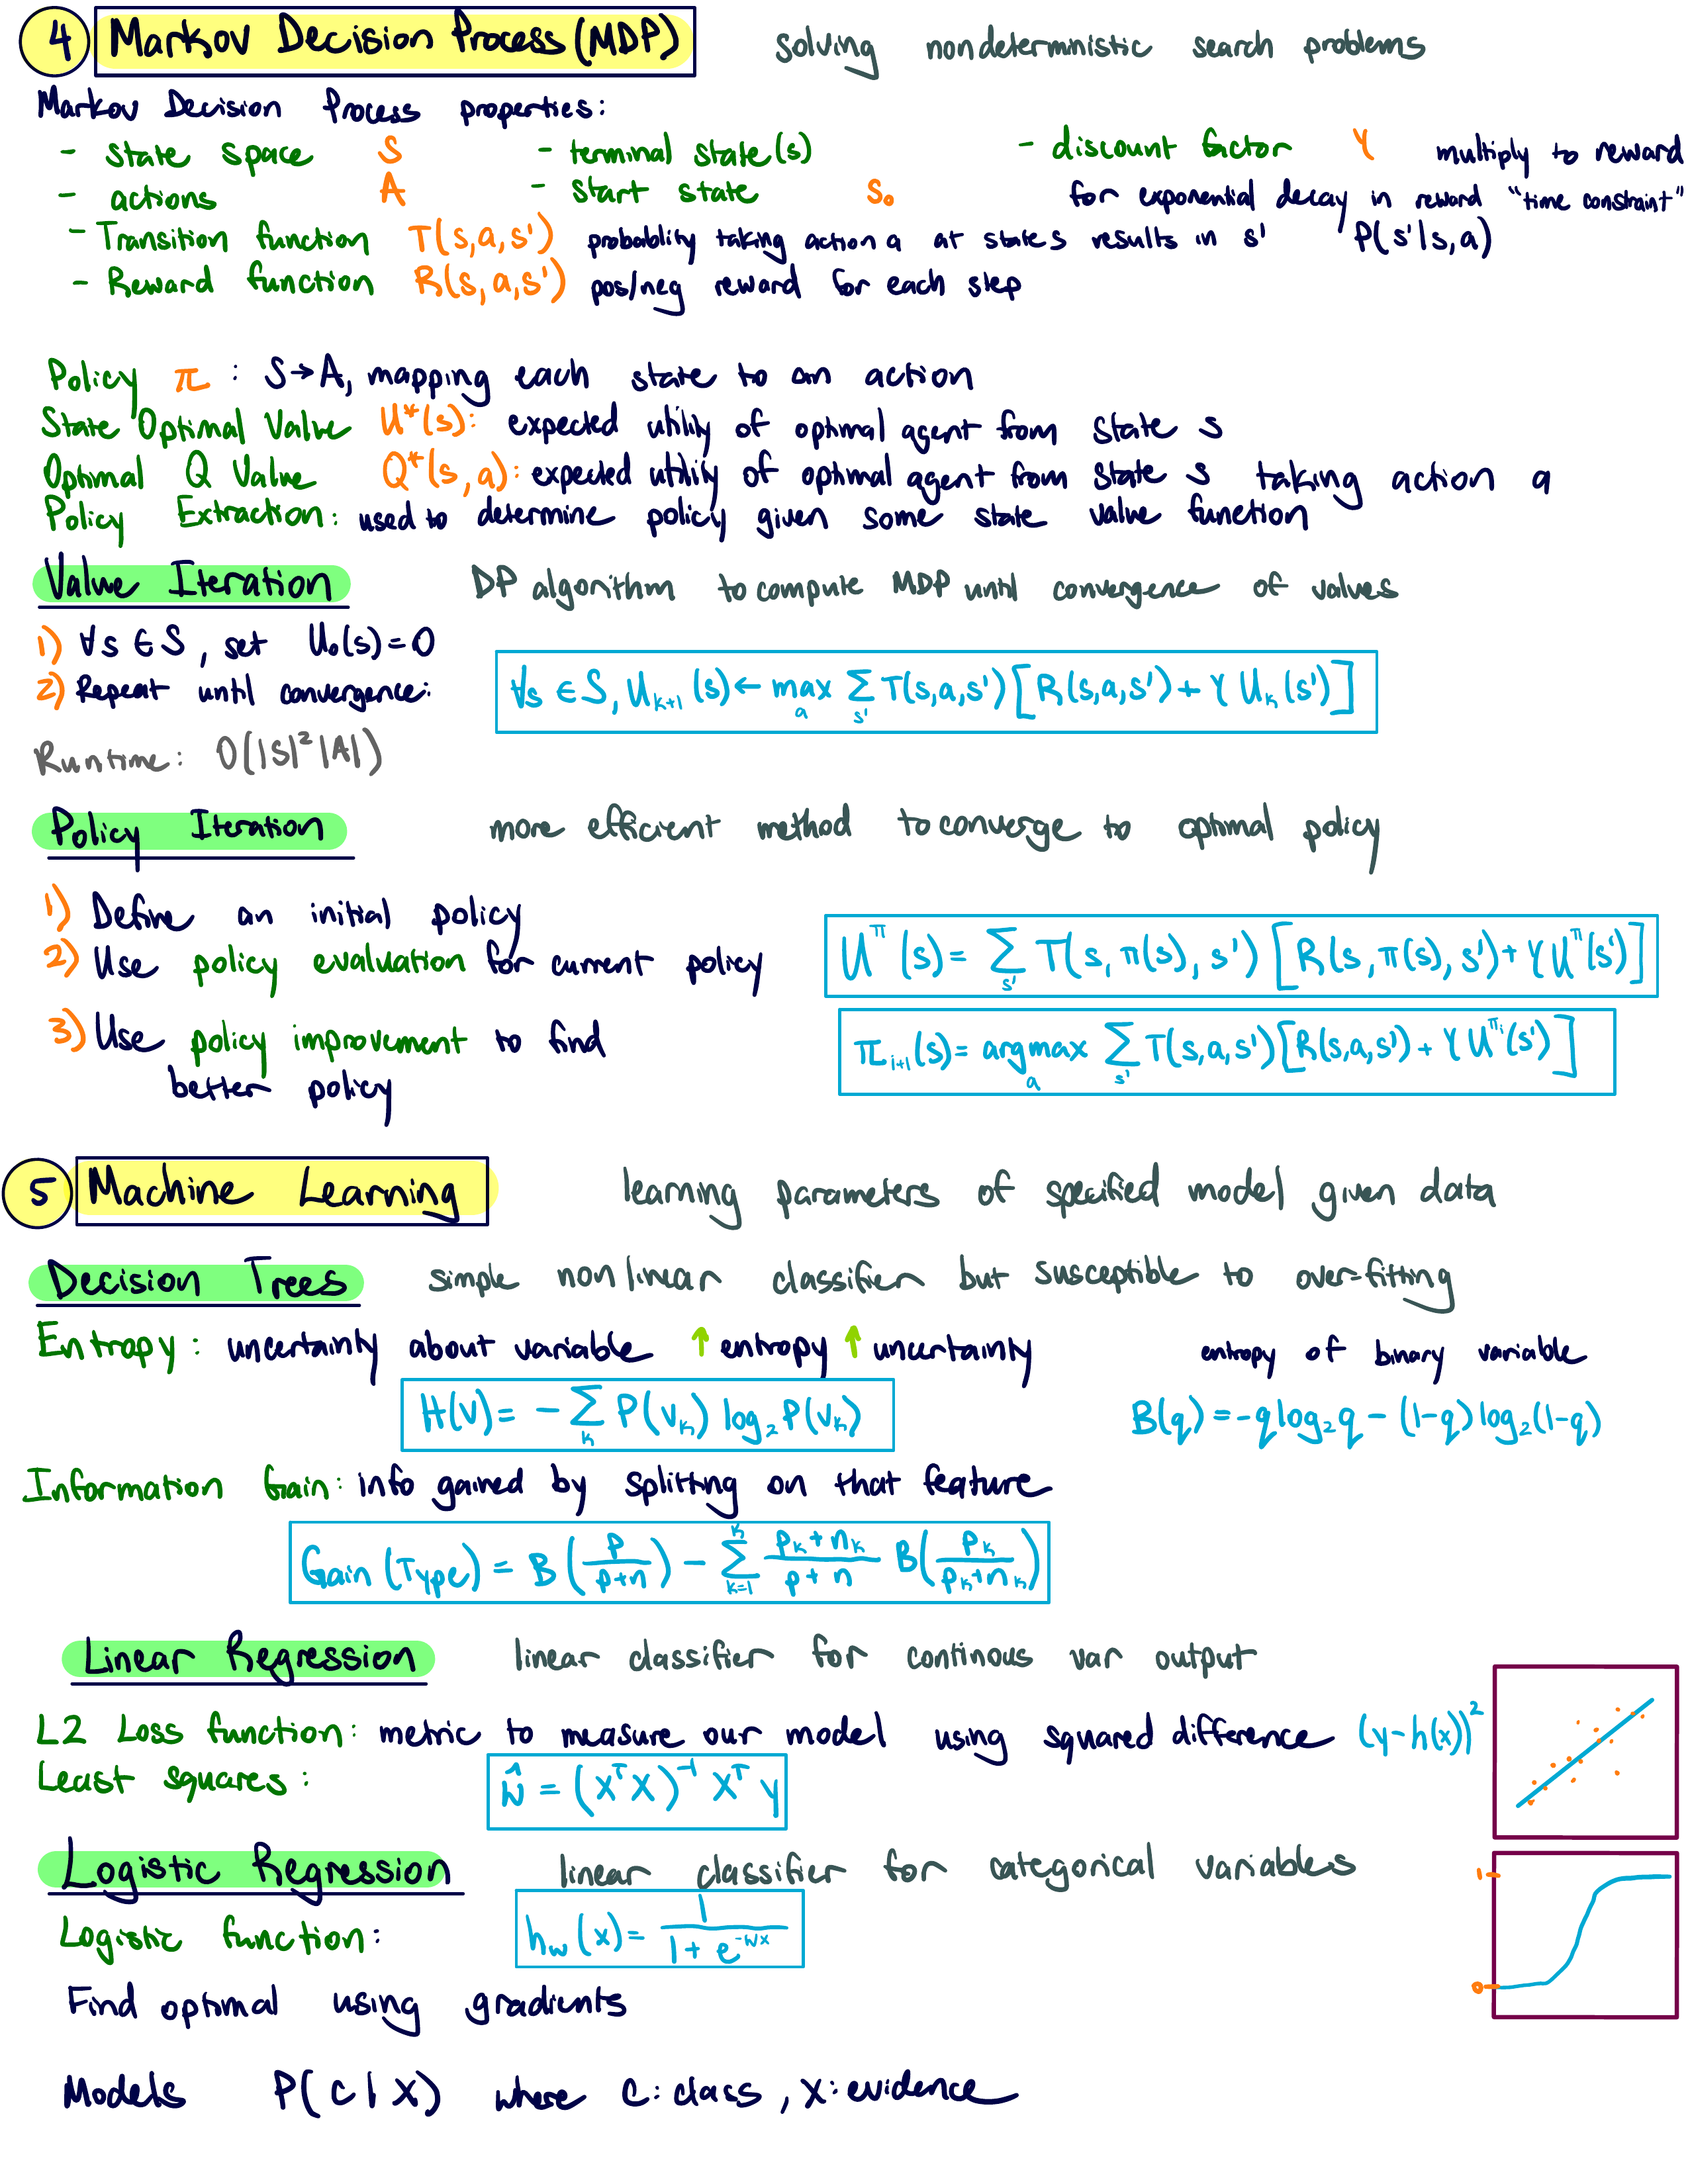 4 Markov Decision Process (MDP) solving nondeterministic search problems
Markov Decision Process properties:
- state space S - terminal state(s) - discount factor γ multiply to reward
- actions A - start state S₀ for exponential decay in reward "time constraint"
- Transition function T(s,a,s') probablity taking action a at state s results in s' P(s'|s,a)
- Reward function R(s,a,s') pos/neg reward for each step
Policy π : S→A, mapping each state to an action
State Optimal Value U*(s): expected utility of optimal agent from state s
Optimal Q Value Q*(s,a): expected utility of optimal agent from state s taking action a
Policy Extraction: used to determine policy given some state value function
Value Iteration DP algorithm to compute MDP until convergence of values
1) ∀s ∈ S, set U₀(s)=0
2) Repeat until convergence:
∀s ∈ S, Uₖ₊₁(s) ← max_a Σ_s' T(s,a,s') [R(s,a,s') + γ Uₖ(s')]
Runtime: O(|S|²|A|)
Policy Iteration more efficient method to converge to optimal policy
1) Define an initial policy
2) Use policy evaluation for current policy
U^π(s) = Σ_s' T(s,π(s),s') [R(s,π(s),s') + γ U^π(s')]
3) Use policy improvement to find
better policy
π_i+1(s) = argmax_a Σ_s' T(s,a,s') [R(s,a,s') + γ U^π_i(s')]
5 Machine Learning learning parameters of specified model given data
Decision Trees simple nonlinear classifier but susceptible to over-fitting
Entropy: uncertainty about variable ↑ entropy ↑ uncertainty entropy of binary variable
H(V) = - Σ_k P(vₖ) log₂ P(vₖ) B(q) = -q log₂ q - (1-q) log₂ (1-q)
Information Gain: info gained by splitting on that feature
Gain (Type) = B(p/(p+n)) - Σ_{k=1}^{k} (pₖ+nₖ)/(p+n) B(pₖ/(pₖ+nₖ))
Linear Regression linear classifier for continous var output
L2 Loss function: metric to measure our model using squared difference (y-h(x))²
Least squares: ŵ = (XᵀX)⁻¹ Xᵀ y
Logistic Regression linear classifier for categorical variables
1
0
Logistic function: h_w(x) = 1/(1 + e^-wx)
Find optimal using gradients
Models P(c|X) where c: class, X: evidence